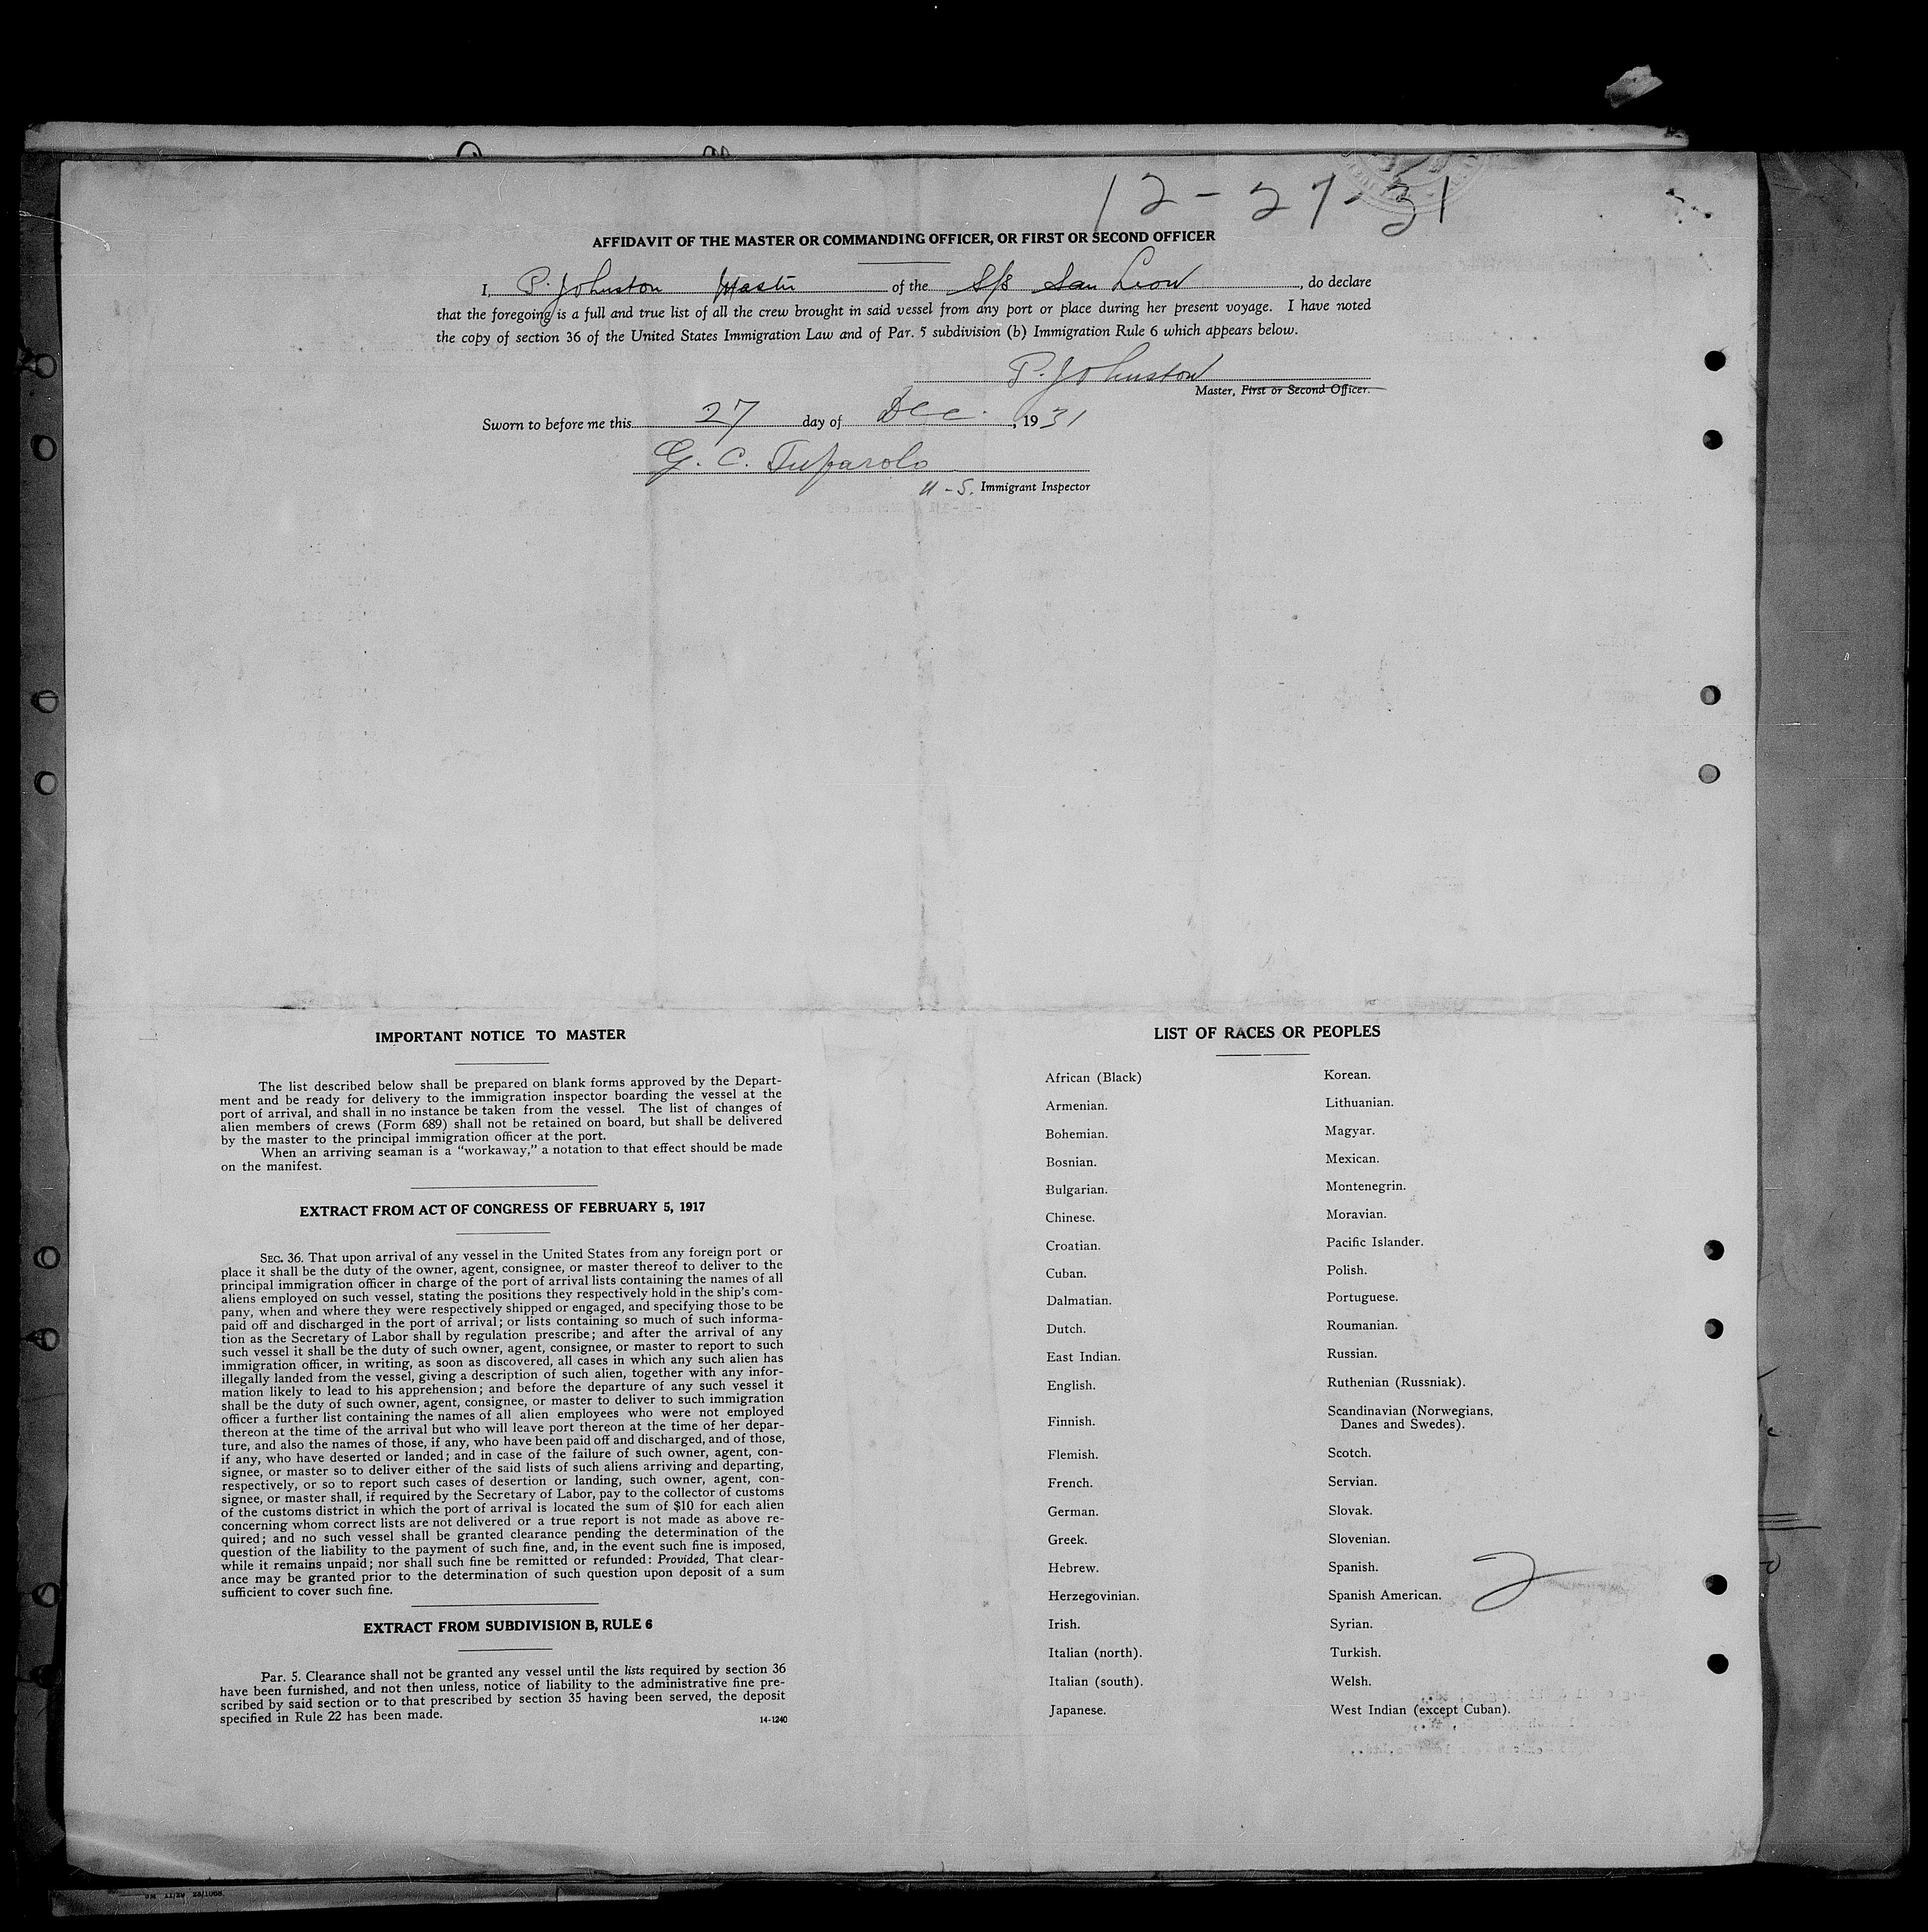 12-27-31
AFFIDAVIT OF THE MASTER OR COMMANDING OFFICER, OR FIRST OR SECOND OFFICER
I, P. Johnston Master of the S/S San , do declare
that the foregoing is a full and true list of all the crew brought in said vessel from any port or place during her present voyage. I have noted
the copy of section 36 of the United States Immigration Law and of Par. 5 subdivision (b) Immigration Rule 6 which appears below.
P. Johnston
Master, First or Second Officer.
Sworn to before me this 27 day of Dec. , 1931
G. C.
U-S. Immigrant Inspector
IMPORTANT NOTICE TO MASTER
The list described below shall be prepared on blank forms approved by the Depart-
ment and be ready for delivery to the immigration inspector boarding the vessel at the
port of arrival, and shall in no instance be taken from the vessel. The list of changes of
alien members of crews (Form 689) shall not be retained on board, but shall be delivered
by the master to the principal immigration officer at the port.
When an arriving seaman is a “workaway,” a notation to that effect should be made
on the manifest.
EXTRACT FROM ACT OF CONGRESS OF FEBRUARY 5, 1917
SEC. 36. That upon arrival of any vessel in the United States from any foreign port or
place it shall be the duty of the owner, agent, consignee, or master thereof to deliver to the
principal immigration officer in charge of the port of arrival lists containing the names of all
aliens employed on such vessel, stating the positions they respectively hold in the ship's com-
pany, when and where they were respectively shipped or engaged, and specifying those to be
paid off and discharged in the port of arrival; or lists containing so much of such informa-
tion as the Secretary of Labor shall by regulation prescribe; and after the arrival of any
such vessel it shall be the duty of such owner, agent, consignee, or master to report to such
immigration officer, in writing, as soon as discovered, all cases in which any such alien has
illegally landed from the vessel, giving a description of such alien, together with any infor-
mation likely to lead to his apprehension; and before the departure of any such vessel it
shall be the duty of such owner, agent, consignee, or master to deliver to such immigration
officer a further list containing the names of all alien employees who were not employed
thereon at the time of the arrival but who will leave port thereon at the time of her depar-
ture, and also the names of those, if any, who have been paid off and discharged, and of those,
if any, who have deserted or landed; and in case of the failure of such owner, agent, con-
signee, or master so to deliver either of the said lists of such aliens arriving and departing,
respectively, or so to report such cases of desertion or landing, such owner, agent, con-
signee, or master shall, if required by the Secretary of Labor, pay to the collector of customs
of the customs district in which the port of arrival is located the sum of $10 for each alien
concerning whom correct lists are not delivered or a true report is not made as above re-
quired; and no such vessel shall be granted clearance pending the determination of the
question of the liability to the payment of such fine, and, in the event such fine is imposed,
while it remains unpaid; nor shall such fine be remitted or refunded: Provided, That clear-
ance may be granted prior to the determination of such question upon deposit of a sum
sufficient to cover such fine.
EXTRACT FROM SUBDIVISION B, RULE 6
Par. 5. Clearance shall not be granted any vessel until the lists required by section 36
have been furnished, and not then unless, notice of liability to the administrative fine pre-
scribed by said section or to that prescribed by section 35 having been served, the deposit
specified in Rule 22 has been made.
14-1240
LIST OF RACES OR PEOPLES
African (Black)
Armenian.
Bohemian.
Bosnian.
Bulgarian.
Chinese.
Croatian.
Cuban.
Dalmatian.
Dutch.
East Indian.
English.
Finnish.
Flemish.
French.
German.
Greek.
Hebrew.
Herzegovinian.
Irish.
Italian (north).
Italian (south).
Japanese.
Korean.
Lithuanian.
Magyar.
Mexican.
Montenegrin.
Moravian.
Pacific Islander.
Polish.
Portuguese.
Roumanian.
Russian.
Ruthenian (Russniak).
Scandinavian (Norwegians,
Danes and Swedes).
Scotch.
Servian.
Slovak.
Slovenian.
Spanish.
Spanish American.
Syrian.
Turkish.
Welsh.
West Indian (except Cuban).
2